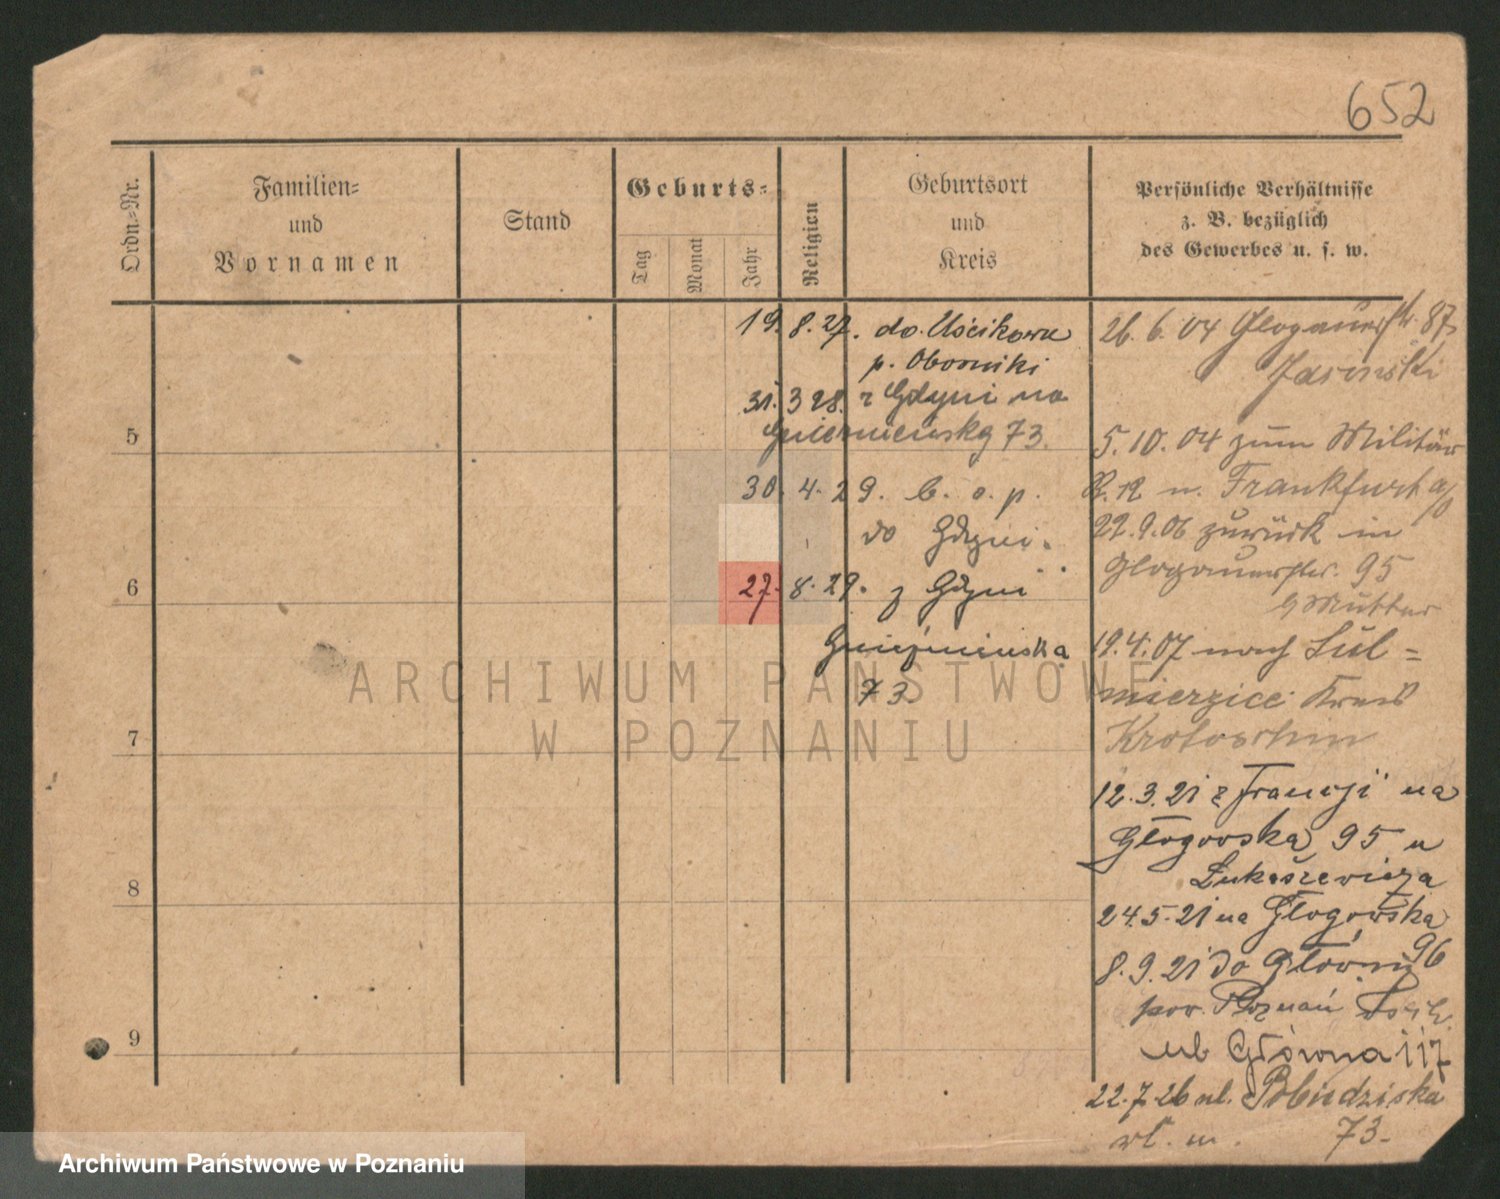 652
Ordn.-Nr.
Familien-
und
Vornamen
Stand
Geburts-
Tag
Monat
Jahr
Religion
Geburtsort
und
Kreis
Persönliche Verhältnisse
z. B. bezüglich
des Gewerbes u. s. w.
19. 8. 27. do Uścikowa
p. Oborniki
31. 3 28. z Gdyni na
Gnieźnieńską 73.
30. 4. 29. b. o. p.
do Gdyni.
27. 8. 29. z Gdyni
Gnieźnieńska
73.
5
6
7
8
9
26. 6. 04 Glogauerstr. 87
Jasinski
5. 10. 04 zum Militär
R. 12 n. Frankfurt a/O
22. 9. 06 zurück in
Glogauerstr. 95
b Mutter
19. 4. 07 nach Sul=
mierzice Kreis
Krotoschin
12. 3. 21 z Francji na
Głogowska 95 u
Łukaszewicza
24. 5. 21 na Głogowska
96
8. 9. 21 do Główni
pow. Poznań
ul Główna 117
22. 7. 26 ul. Pobiedziska
wł. m. 73.
ARCHIWUM PAŃSTWOWE
W POZNANIU
Archiwum Państwowe w Poznaniu